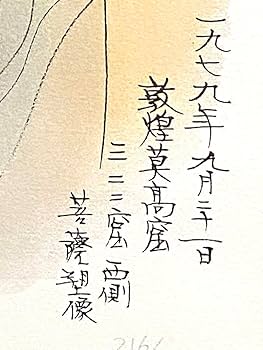 一九七九年九月二十一日
敦煌莫高窟
三二二窟西側
菩薩塑像